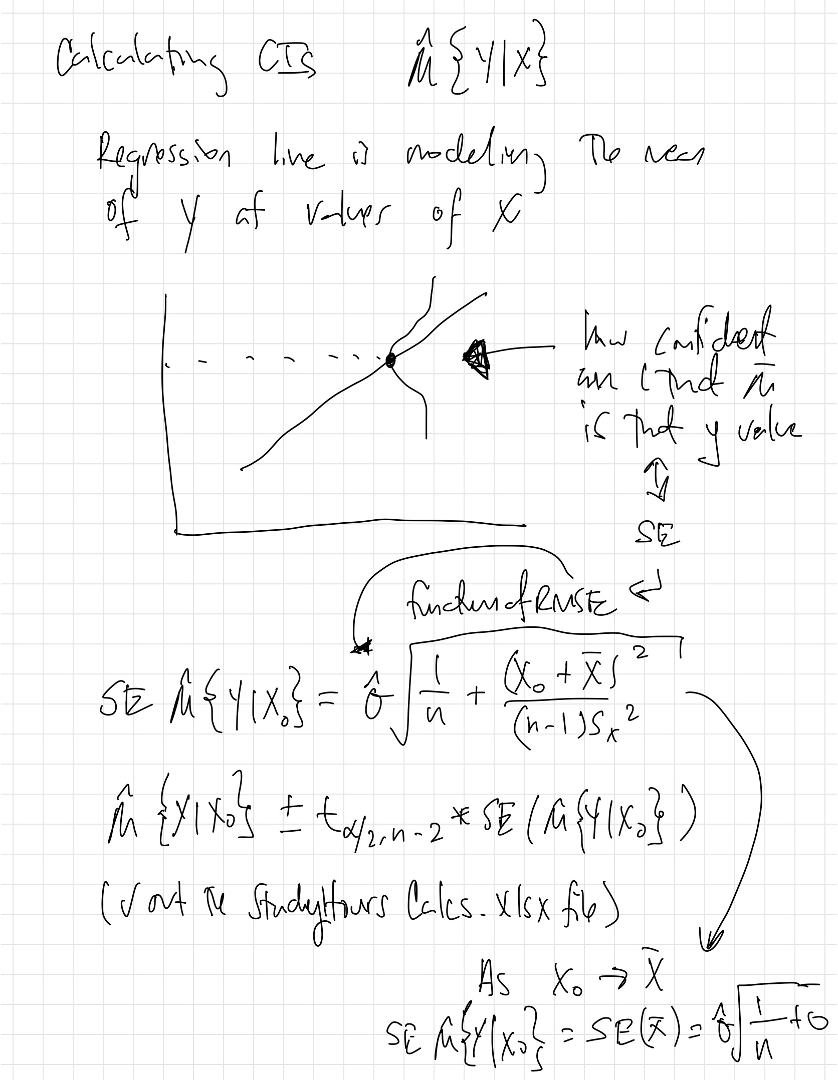 Calculating CIs μ̂{Y|X}
Regression line is modeling the mean
of Y at values of X
how confident
am I that μ̄
is that y value
SE
function of RMSE
SE μ̂{Y|X₀} = σ̂√(1/n + (X₀ + X̄)²/((n-1)Sₓ²))
μ̂{Y|X₀} ± t α/2, n-2 * SE(μ̂{Y|X₀})
(√ out the StudyHours Calcs.xlsx file)
As X₀ → X̄
SE μ̂{Y|X₀} = SE(x̄) = σ̂√(1/n + 0)